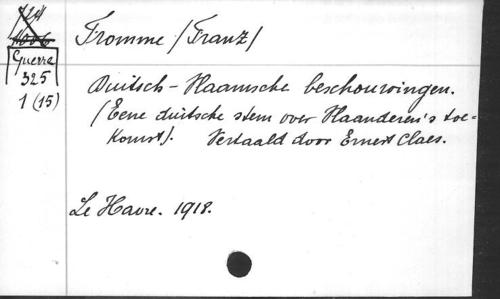 Fromme /Franz/
Guerre
325
1 (15)
Duitsch-Vlaamsche beschouwingen.
(Eene duitsche stem over Vlaanderen's toe=
komst). Vertaald door Ernest Claes.
Le Havre. 1918.